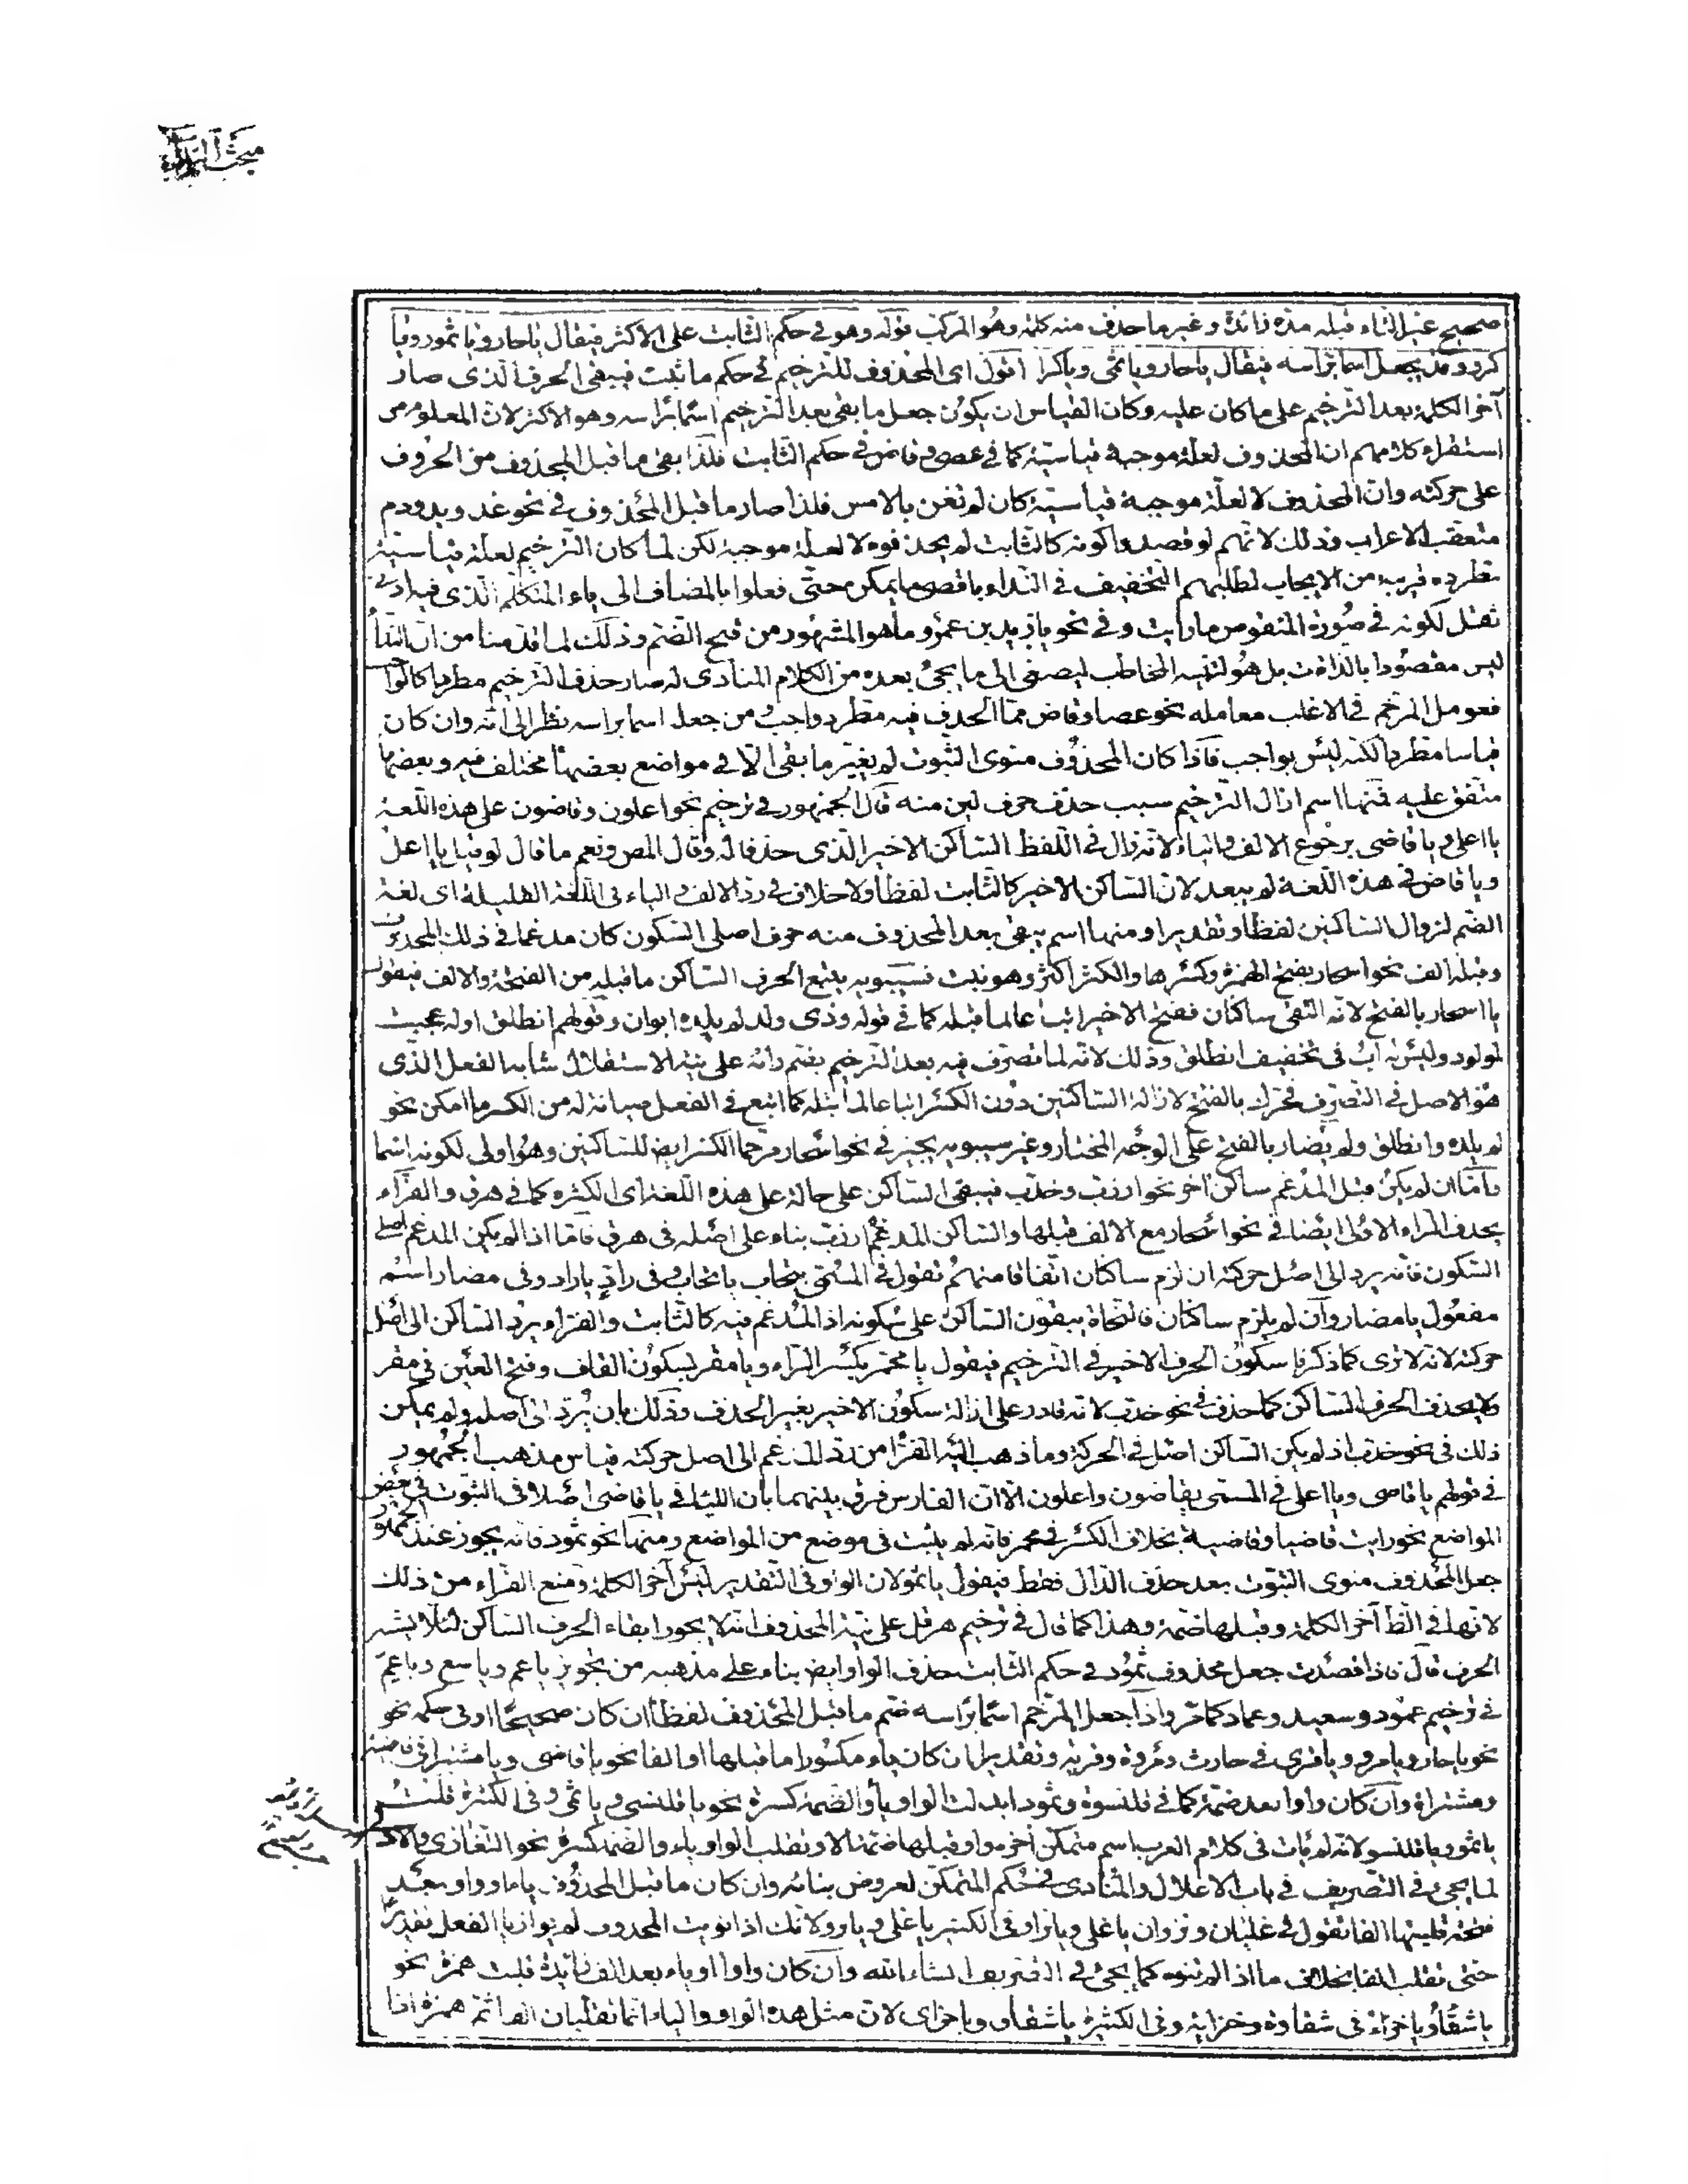 مبحث النداء
صحيح غير التاء قبله مدة زائدة وغير ما حذف منه كلمة وهو المركب قوله وهو في حكم الثابت على الاكثر فيقال يا حار ويا ثمو ويا
كرو وقد يجعل اسما براسه فيقال يا حار ويا ثمى ويا كرا اقول اى المحذوف للترخيم في حكم ما ثبت فيبقى الحرف الذى صار
آخر الكلمة بعد الترخيم على ما كان عليه وكان القياس ان يكون جعل ما بقى بعد الترخيم اسما براسه وهو الاكثر لان المعلوم من
استقراء كلامهم ان المحذوف لعلة موجبة قياسية كما في عصى وقاض في حكم الثابت فلذا بقى ما قبل المحذوف من الحروف
على حركته وان المحذوف لا لعلة موجبة قياسية كان لم تغن بالامس فلذا صار ما قبل المحذوف في نحو غد ويد ودم
متعقب الاعراب وذلك لانهم لو قصدوا كونه كالثابت لم يحذفوه لا لعلة موجبة لكن لما كان الترخيم لعلة قياسية
مطردة قريبة من الايجاب لطلبهم التخفيف في النداء باقصى ما يمكن حتى فعلوا بالمضاف الى ياء المتكلم الذى فيه ادنى
ثقل لكونه في صورة المنقوص ما رايت وفي نحو يا زيد بن عمرو ما هو المشهور من فتح الضم وذلك لما قدمنا من ان النداء
ليس مقصودا بالذات بل هو لتنبيه المخاطب ليصغى الى ما يجئ بعده من الكلام المنادى له صار حذف الترخيم مطردا كالواجب
فعومل المرخم في الاغلب معامله نحو عصا وقاض مما الحذف فيه مطرد واجب ومن جعل اسما براسه نظر الى انه وان كان
قياسا مطردا لكنه ليس بواجب فاذا كان المحذوف منوى الثبوت لم يغير ما بقى الا في مواضع بعضها مختلف فيه وبعضها
متفق عليه فمنها اسم ازال الترخيم سبب حذف حرف لين منه قال الجمهور في ترخيم نحو اعلون وقاضون على هذه اللغة
يا اعلى ويا قاضى برجوع الالف والياء لانه زال في اللفظ الساكن الاخير الذى حذفا له وقال المص ونعم ما قال لو قيل يا اعل
ويا قاض في هذه اللغة لم يبعد لان الساكن الاخير كالثابت لفظا ولا خلاف في رد الالف والياء في اللغة القليلة اى لغة
الضم لزوال الساكنين لفظا وتقديرا ومنها اسم يبقى بعد المحذوف منه حرف اصلى السكون كان مدغما في ذلك المحذوف
وقبله الف نحو اسحار بفتح الهمزة وكسرها والكسر اكثر وهو نبت فسيبويه يتبع الحرف الساكن ما قبله من الفتحة والالف فيقول
يا اسحار بالفتح لانه التقى ساكنان ففتح الاخير اتباعا لما قبله كما في قوله وذى ولد لم يلده ابوان وقولهم انطلق اوله عجبت
لمولود وليس له اب في تخفيف انطلق وذلك لانه لما تصرف فيه بعد الترخيم بضم رائه على نية الاستقلال شابه الفعل الذى
هو الاصل في التصرف فحرك بالفتح لازالة الساكنين دون الكسر اتباعا لما قبله كما اتبع في الفعل صيانة له من الكسر ما امكن نحو
لم يلده وانطلق ولم يضار بالفتح على الوجه المختار وغير سيبويه يجيز في نحو اسحار مرخما الكسر ايض للساكنين وهو اولى لكونه اسما
واما ان لم يكن قبل المدغم ساكن آخر نحو ارزب وخدب فيبقى الساكن على حاله على هذه اللغة اى الكثيرة كما في هرق والفراء
يحذف الراء الاولى ايضا في نحو اسحار مع الالف قبلها والساكن المدغم ارزب بناء على اصله في هرق فاما اذا لم يكن المدغم اصلى
السكون فانه يرد الى اصل حركته ان لزم ساكنان اتفاقا منهم تقول في المسمى بتحاب يا تحاب وفي راد يا راد وفي مضار اسم
مفعول يا مضار وان لم يلزم ساكنان فالنحاة يبقون الساكن على سكونه اذ المدغم فيه كالثابت والفراء يرد الساكن الى اصل
حركته لانه لا يرى كما ذكرنا سكون الحرف الاخير في الترخيم فيقول يا محمر بكسر الراء ويا مفر بسكون القاف وفتح العين في مفر
ولا يحذف الحرف الساكن كما حذف في نحو خدب لانه قادر على ازالة سكون الاخير بغير الحذف وذلك بان يرد الى اصله ولم يمكن
ذلك في نحو خدب اذ لم يكن الساكن اصل في الحركة وما ذهب اليه الفرا من رد المدغم الى اصل حركته قياس مذهب الجمهور
في قولهم يا قاضى ويا اعلى في المسمى بقاضون واعلون الا ان الفارس فرق بينهما بان الياء في يا قاضى اصلا في الثبوت في بعض
المواضع نحو رايت قاضيا وقاضية بخلاف الكسر في محمر فانه لم يثبت في موضع من المواضع ومنها نحو ثمود فانه يجوز عند الجمهور
جعل المحذوف منوى الثبوت بعد حذف الدال فقط فيقول يا ثمو لان الواو في التقدير ليس آخر الكلمة ومنع الفراء من ذلك
لانها في الظ آخر الكلمة وقبلها ضمة وهذا كما قال في ترخيم هرقل على نية المحذوف انه لا يجوز ابقاء الحرف الساكن لئلا يشبه
الحرف قال فاذا قصدت جعل محذوف ثمود في حكم الثابت حذف الواو ايض بناء على مذهبه من تجويز يا عم ويا سع ويا عم
في ترخيم عمود وسعيد وعماد كما مر واذا جعل المرخم اسما براسه ضم ما قبل المحذوف لفظا ان كان صحيحا او في حكمه نحو
نحو يا حار ويا مرو ويا فرى في حارث ومروة وفرية وتقديرا ان كان ياء مكسورا ما قبلها او الفا نحو يا قاضى ويا مشترا في قاضية
ومشتراة وان كان واوا بعد ضمة كما في قلنسوة وثمود ابدلت الواو ياء والضمة كسرة نحو يا قلنسى ويا ثمى وفي الكثيرة قلت
يا ثمو ويا قلنسو لانه لم يات في كلام العرب اسم متمكن آخره واو قبلها ضمة الا وتقلب الواو ياء والضمة كسرة نحو التغازى والادلى
لما يجئ في التصريف في باب الاعلال والمنادى في حكم المتمكن لعروض بنائه وان كان ما قبل المحذوف ياء او واو بعد
فتحة قلبتها الفا تقول في غليان ونزوان يا غلى ويا نزا وفي الكثير يا غلى ويا نزو ولانك اذا نويت المحذوف لم يوازيا الفعل تقديرا
حتى تقلب الفا بخلاف ما اذا لم تنوه كما يجئ في التصريف انشاء الله وان كان واوا او ياء بعد الف زائدة قلبت همزة نحو
يا شقاء ويا خزاء في شقاوة وخزاية وفي الكثيرة يا شقاو ويا خزاى لان مثل هذه الواو والياء انما تقلبان الفا ثم همزة اذا